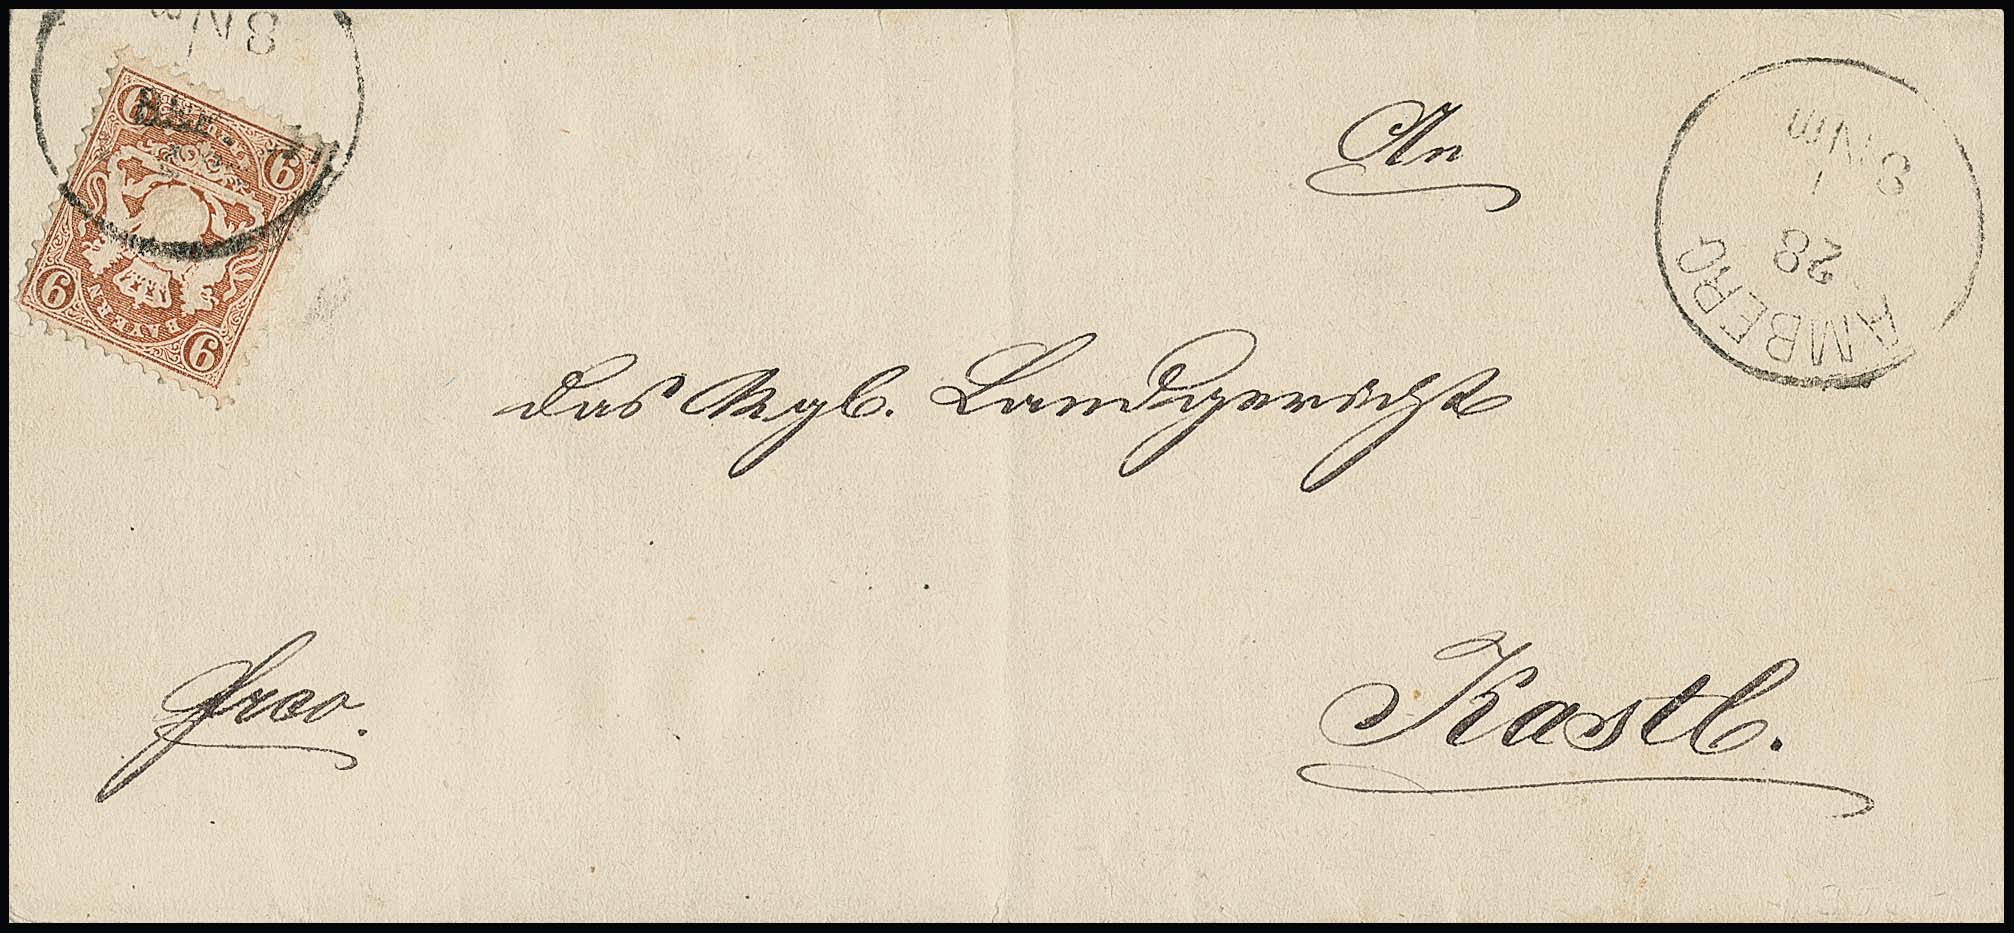 3 Nm
6 6
BAYERN
6 6
AMBERG
28
1
3 Nm
An
das Kgl. Landgericht
frco.
Kastl.